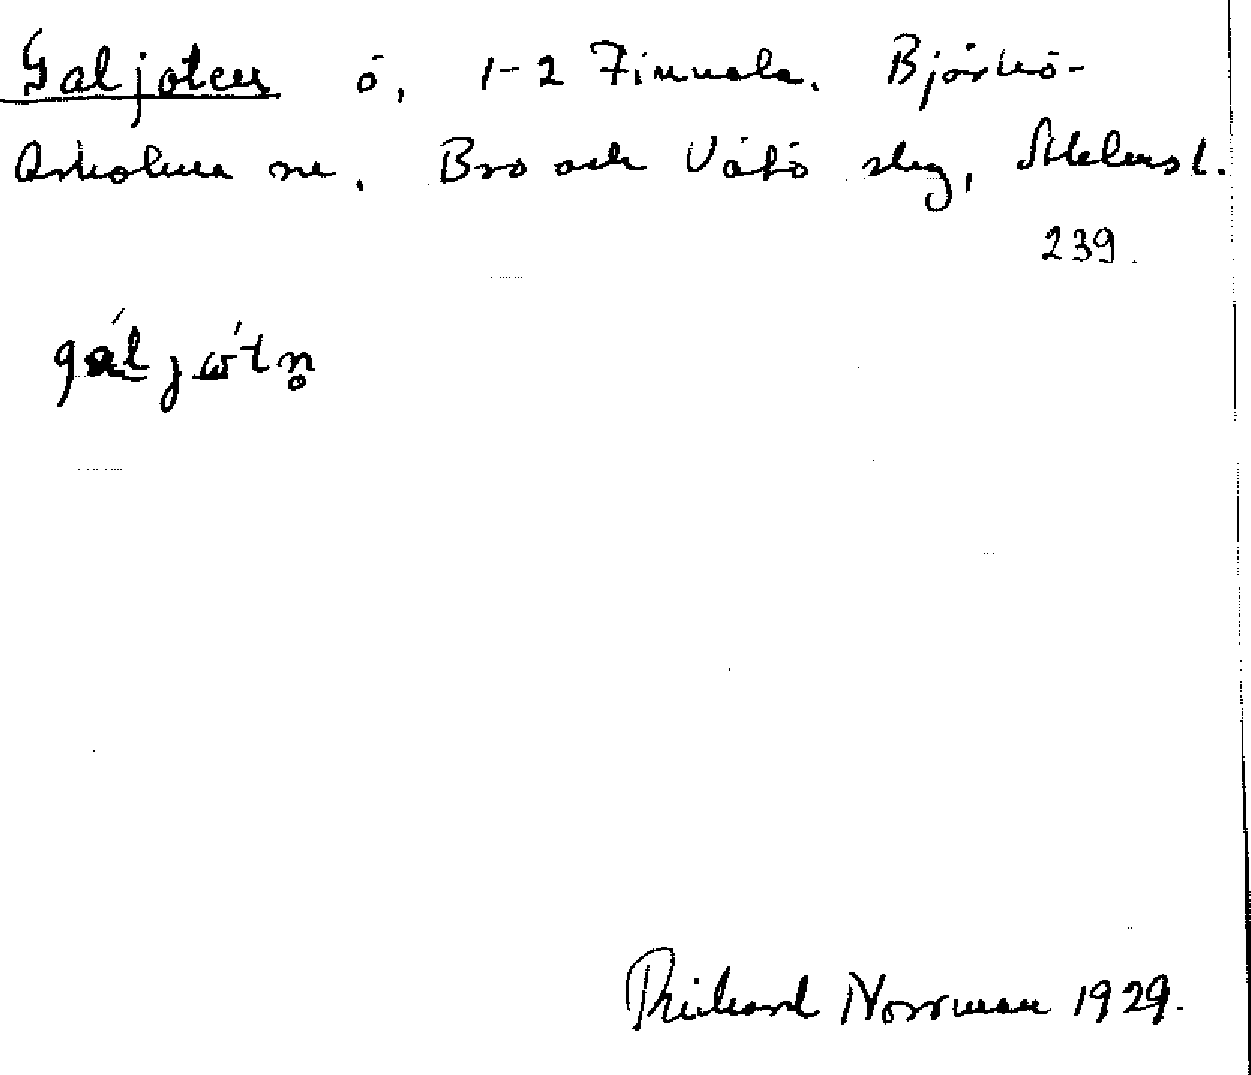 Galjoten ö, 1-2 Finnala. Björkö-
Arholma sn. Bro och Vätö skg, Sthlmsl.
239.
Rickard Norrman 1929.